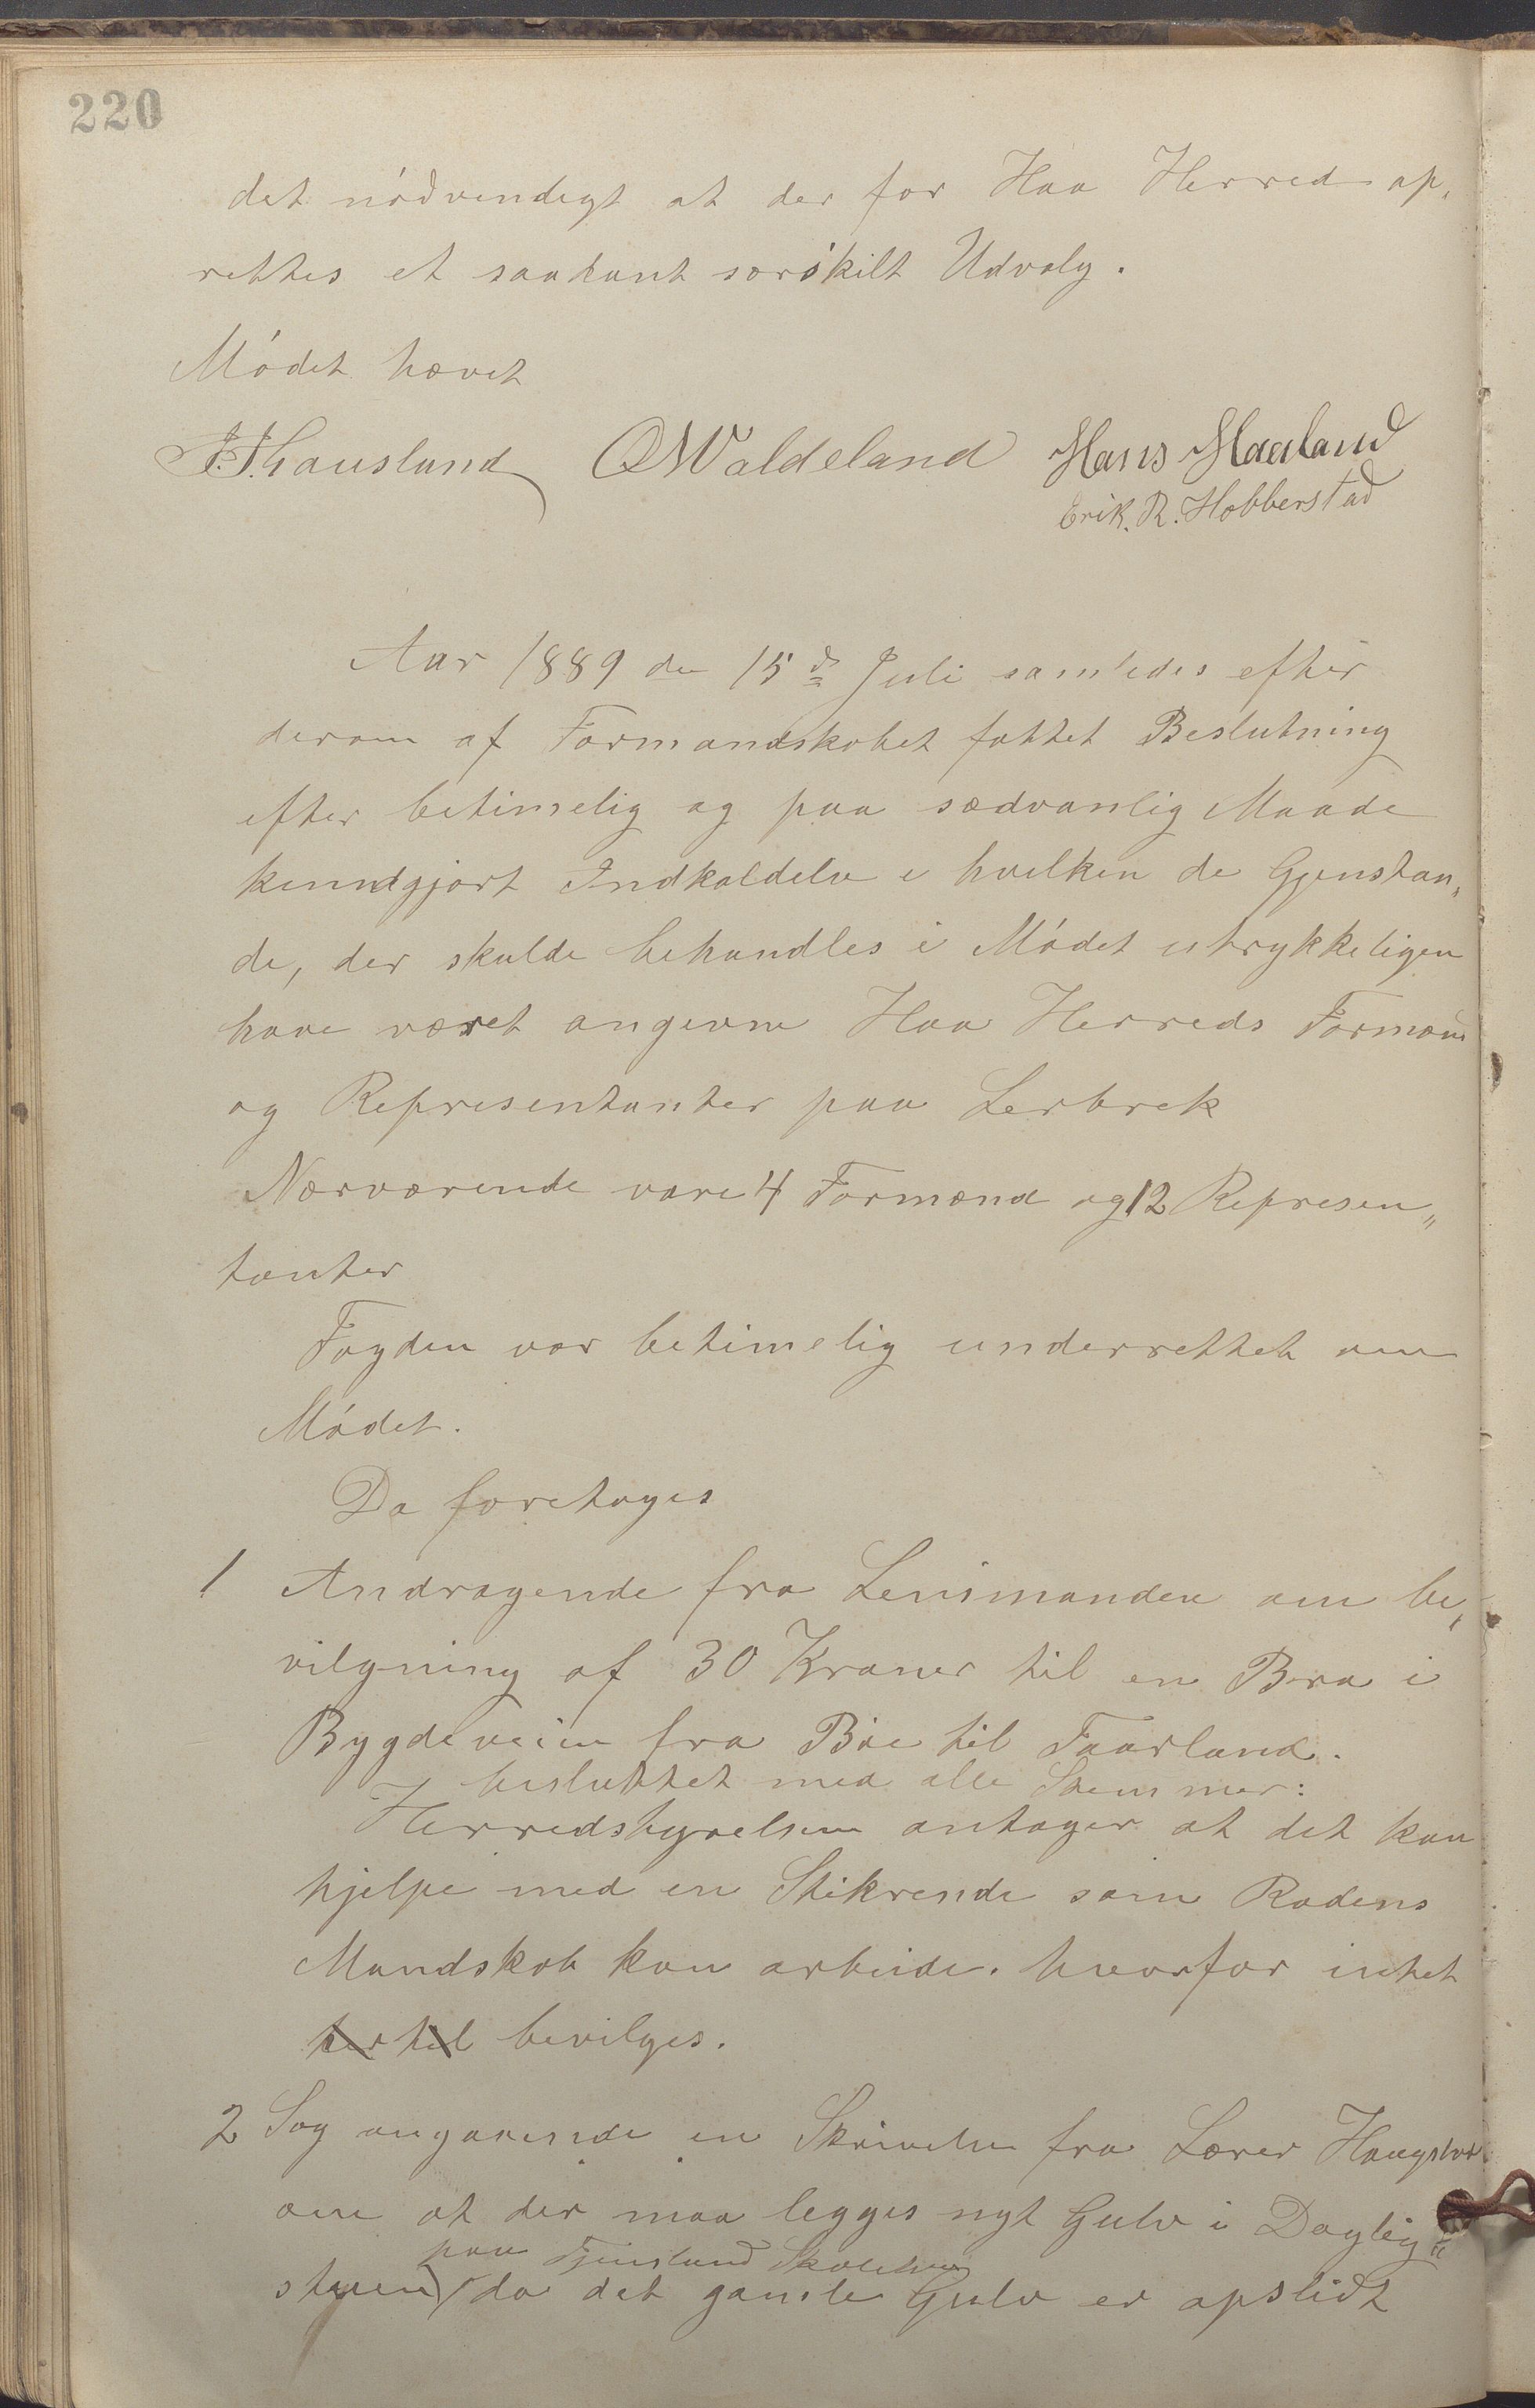 220
det nødvendigt at der for Haa Herred op„
rettes et saadant særskilt Udvalg.
Mødet hævet
OWaldeland Hans Haaland
Erik. R. Hobberstad
Aar 1889 den 15de Juli samledes efter
derom af Formandskabet fattet Beslutning
efter betimelig og paa sædvanlig Maade
kundgjort Indkaldelse i hvilken de Gjenstan„
de, der skulde behandles i Mødet utrykkeligen
have været angivne Haa Herreds Formænd
og Representanter paa Lerbrek
Nærværende vare 4 Formænd og 12 Represen„
tanter
Fogden var betimelig underrettet om
Mødet.
Da foretoges
1 Andragende fra Lensmanden om be„
vilgning af 30 Kroner til en Bro i
Bygdeveien fra Bøe til Faarland.
besluttet med alle Stemmer:
Herredstyrelsen antager at det kan
hjelpe med en Stikrende som Rodens
Mandskab kan arbeide. hvorfor intet
hertil bevilges.
2 Sag angaaende en Skrivelse fra Lærer
om at der maa legges nyt Gulv i Daglig„
paa Tjensland Skolehus
stuen da det gamle Gulv er opslidt